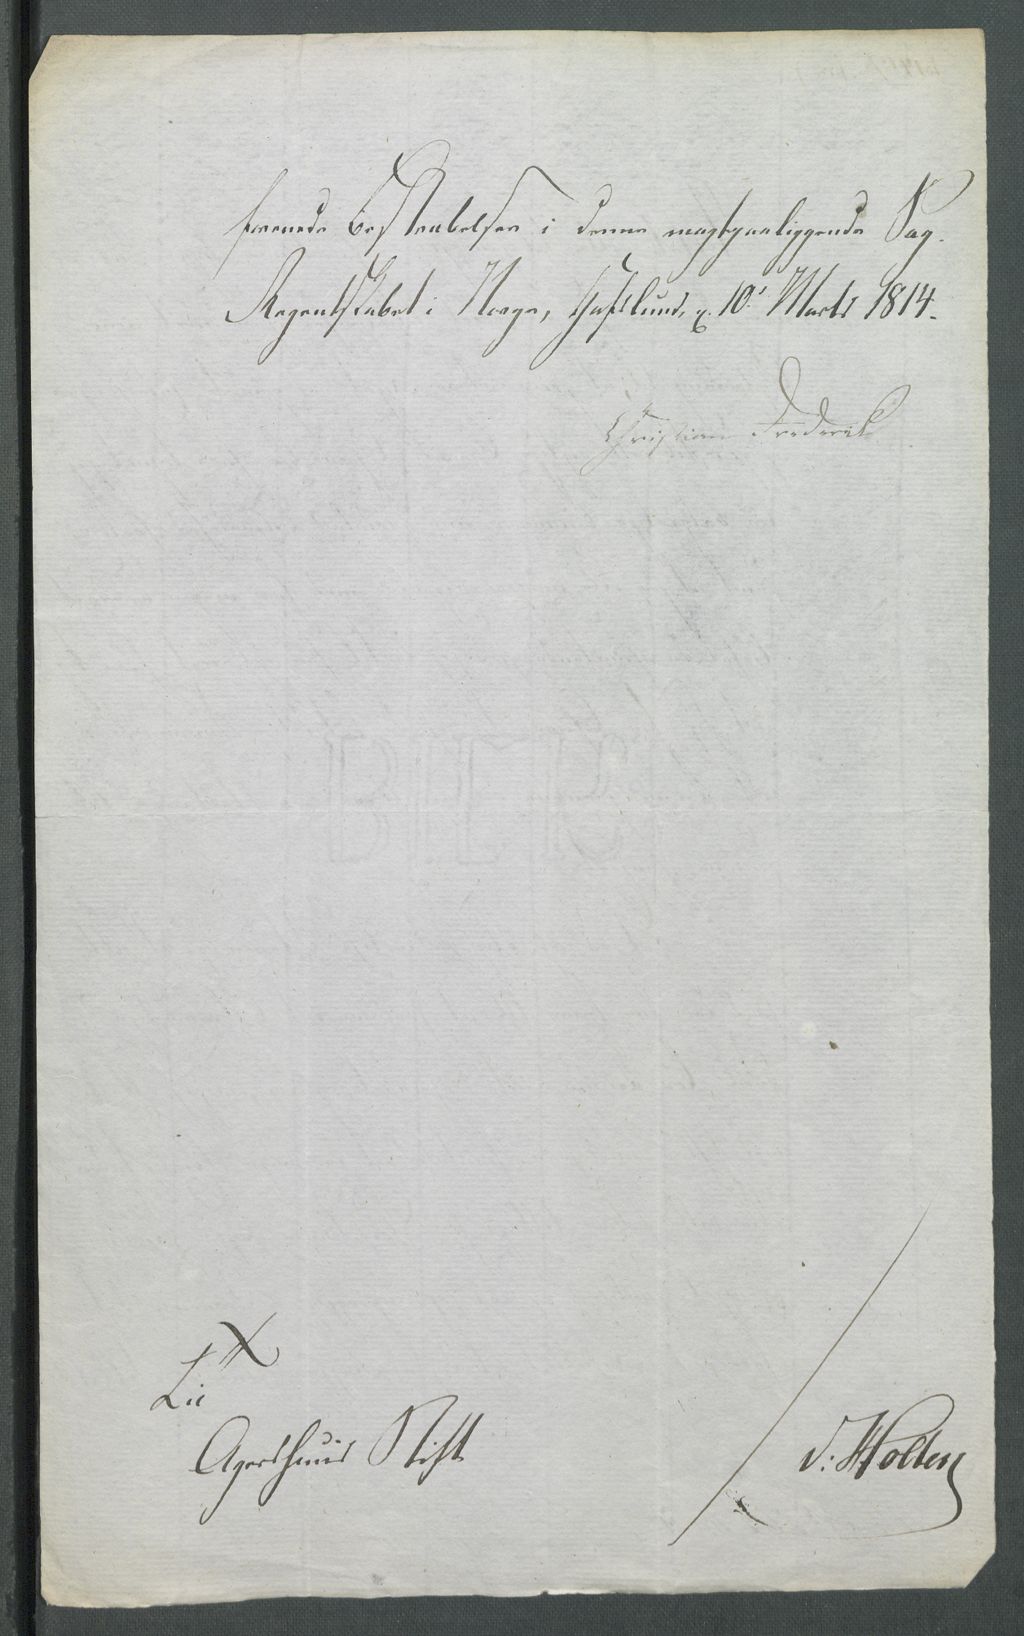 forenede Bestræbelser i denne magtpaaliggende Sag.
Regentskabet i Norge, Hafslund, d. 10' Marts 1814.
Christian Frederik
Til
Agershuus Stift
v: Holten